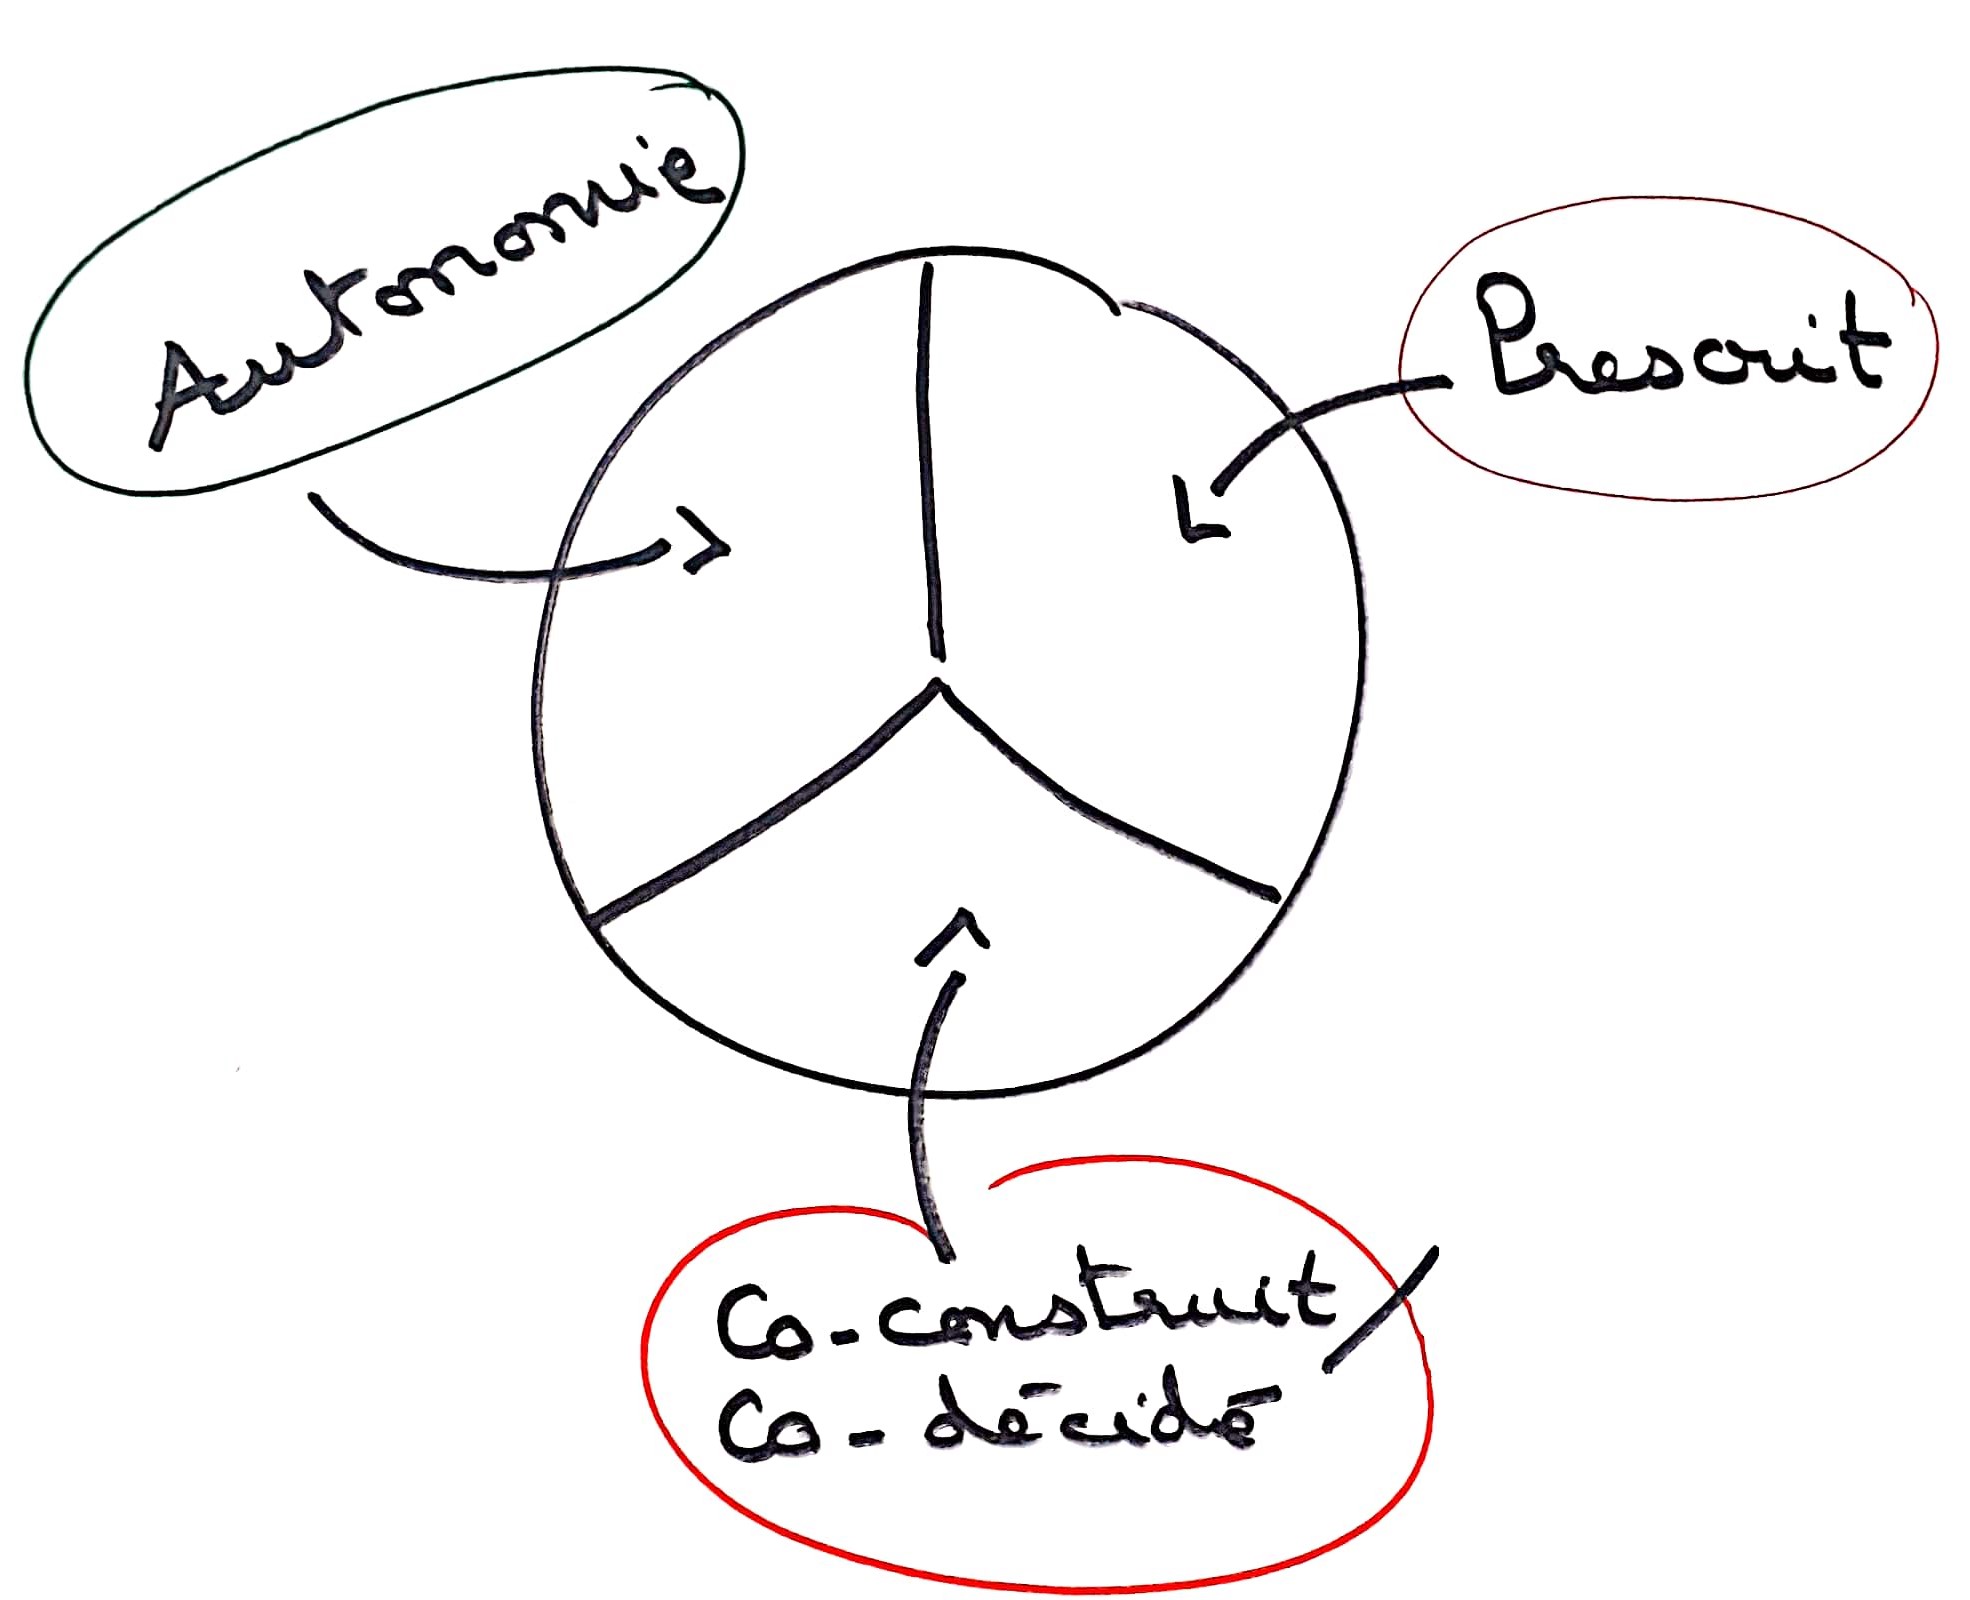 Autonomie
Prescrit
Co-construit /
Co-décidé